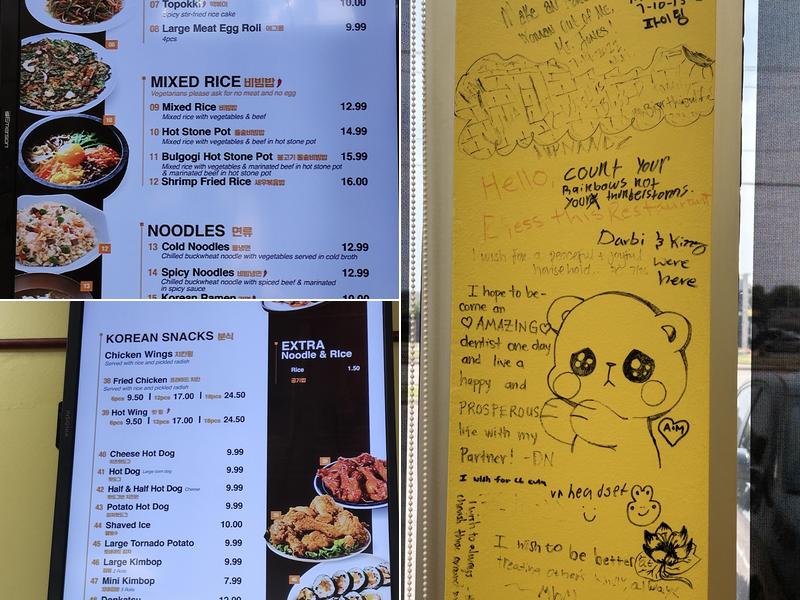 07 Topokki 떡볶이 10.00
Spicy stir-fried rice cake
08 Large Meat Egg Roll 에그롤 9.99
4pcs
06
MIXED RICE 비빔밥
Vegetarians please ask for no meat and no egg
09 Mixed Rice 비빔밥 12.99
Mixed rice with vegetables & beef
10
10 Hot Stone Pot 돌솥비빔밥 14.99
Mixed rice with vegetables & beef in hot stone pot
11 Bulgogi Hot Stone Pot 불고기 돌솥비빔밥 15.99
Mixed rice with vegetables
& marinated beef in hot stone pot
& marinated beef
12 Shrimp Fried Rice 새우볶음밥 16.00
12
NOODLES 면류
13 Cold Noodles 물냉면 12.99
Chilled buckwheat noodle with vegetables served in cold broth
14 Spicy Noodles 비빔냉면 12.99
Chilled buckwheat noodle with spiced beef & marinated
in spicy sauce
13
15 Korean Ramen 10.00
Emerson
KOREAN SNACKS 분식
Chicken Wings 치킨윙
Served with rice and pickled radish
38 Fried Chicken 프라이드 치킨
Served with rice and pickled radish
6pcs 9.50 | 12pcs 17.00 | 18pcs 24.50
39 Hot Wing 핫 윙
6pcs 9.50 | 12pcs 17.00 | 18pcs 24.50
40 Cheese Hot Dog 9.99
치즈핫도그
41 Hot Dog Large corn dog 9.99
핫도그
42 Half & Half Hot Dog Cheese 9.99
43 Potato Hot Dog 9.99
감자핫도그
44 Shaved Ice 10.00
팥빙수
45 Large Tornado Potato 9.99
46 Large Kimbop 9.99
김밥 2 Rolls
47 Mini Kimbop 7.99
3 Rolls
48 Donkatsu 12.00
EXTRA
Noodle & Rice
Rice 1.50
공기밥
Make an
Woman out of Me,
Mr. Jones!
7-10-15
파이팅
Hello,
count Your
Rainbows not
Your thunderstorms.
Eless this Restaurant
Darbi & King
were
here
I wish for a peaceful & joyful
household.
I hope to be-
come an
♡AMAZING♡
dentist one day
and live a
happy and
PROSPEROUS
life with my
Partner! -DN
A+M
I wish for
vr headset
I wish to always
cherish those around
I wish to be better at
treating others kindly, always